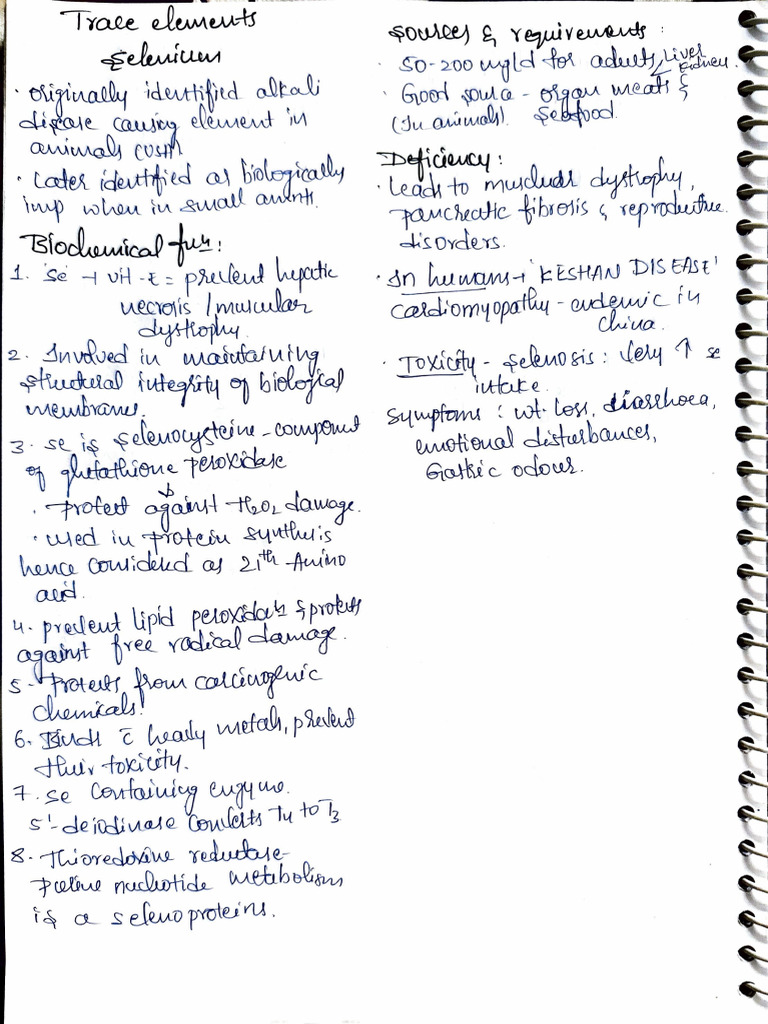 Trace elements
Selenium
· originally identified alkali
disease causing element in
animals (USA)
· Later identified as biologically
imp when in small amnts.
Biochemical fun:
1. Se + vit-E = prevent hepatic
necrosis / muscular
dystrophy.
2. Involved in maintaining
structural integrity of biological
membranes.
3. se is selenocysteine - component
of glutathione peroxidase
· protect against H2O2 damage.
· used in protein synthesis
hence considered as 21th Amino
acid.
4. prevent lipid peroxidatn & protects
against free radical damage.
5- Protects from carcinogenic
chemicals!
6. Binds c̄ heavy metals, prevent
their toxicity.
7. se containing enzyme.
5'-deiodinase converts T4 to T3
8. Thioredoxine reductase-
purine nucleotide metabolism
is a selenoproteins.
Sources & requirements:
· 50-200 mg/d for adults
· Good source - organ meats < Liver Kidney. &
(In animals) Seafood.
Deficiency:
· Leads to muscular dystrophy,
pancreatic fibrosis & reproductive
disorders.
· In humans → 'KESHAN DISEASE'
cardiomyopathy - endemic in
china.
· TOXICITY - Selenosis: Very ↑ se
intake.
symptoms: wt. loss, diarrhoea,
emotional disturbances,
Garlic odour.